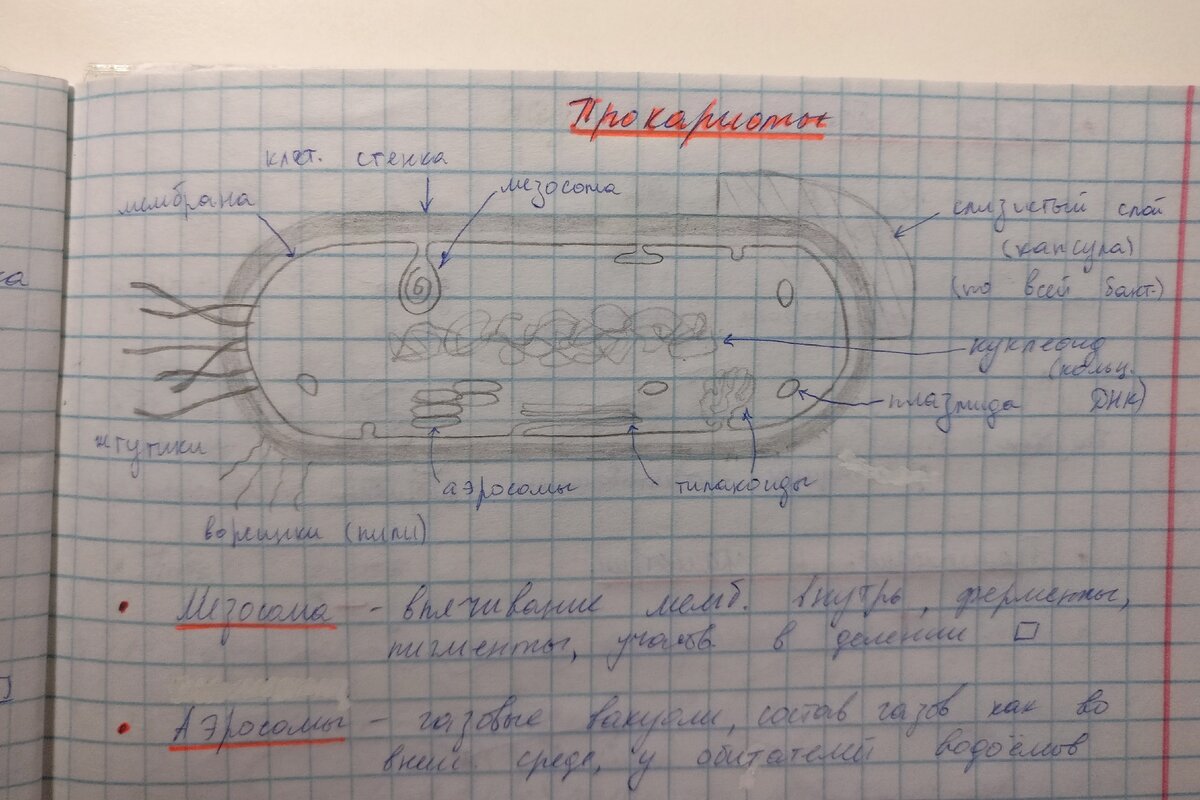 Прокариоты
клет. стенка
мембрана
мезосома
слизистый слой
(капсула)
(по всей бакт.)
нуклеоид
(кольц.
ДНК)
плазмида
жгутики
аэросомы
тилакоиды
ворсинки (пили)
• Мезосома - впячивание мемб. внутрь, ферменты,
пигменты, участв в делении □
• Аэросомы - газовые вакуоли, состав газов как во
внеш. среде, у обитателей водоёмов
ка